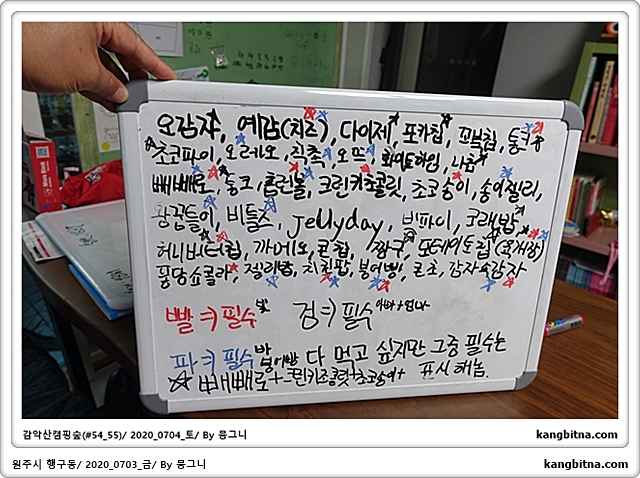 오감자, 예감(치즈), 다이제, 포카칩, 콘칩, 통크
초코파이, 오레오, 칙촉, 오뜨, 화이트하임, 나쵸
빼빼로, 홈런볼, 크런키초콜릿, 초코송이, 송이젤리,
왕꿈틀이, 비틀즈, jellyday, 빅파이, 고래밥
허니버터칩, 까메오, 콘칩, 짱구, 포테이토칩(육개장)
퐁당쇼콜라, 젤리밥, 치킨팝, 붕어빵, 콘초, 감자속감자
빨 = 필수 빛 검 = 필수 아빠+엄나
파 = 필수 밤 다 먹고 싶지만 그중 필수는
☆ 빼빼로+크런키초콜릿+초코송이+ 표시 해놈.
감악산캠핑숲(#54_55)/ 2020_0704_토/ By 뭉그니 kangbitna.com
원주시 행구동/ 2020_0703_금/ By 뭉그니 kangbitna.com